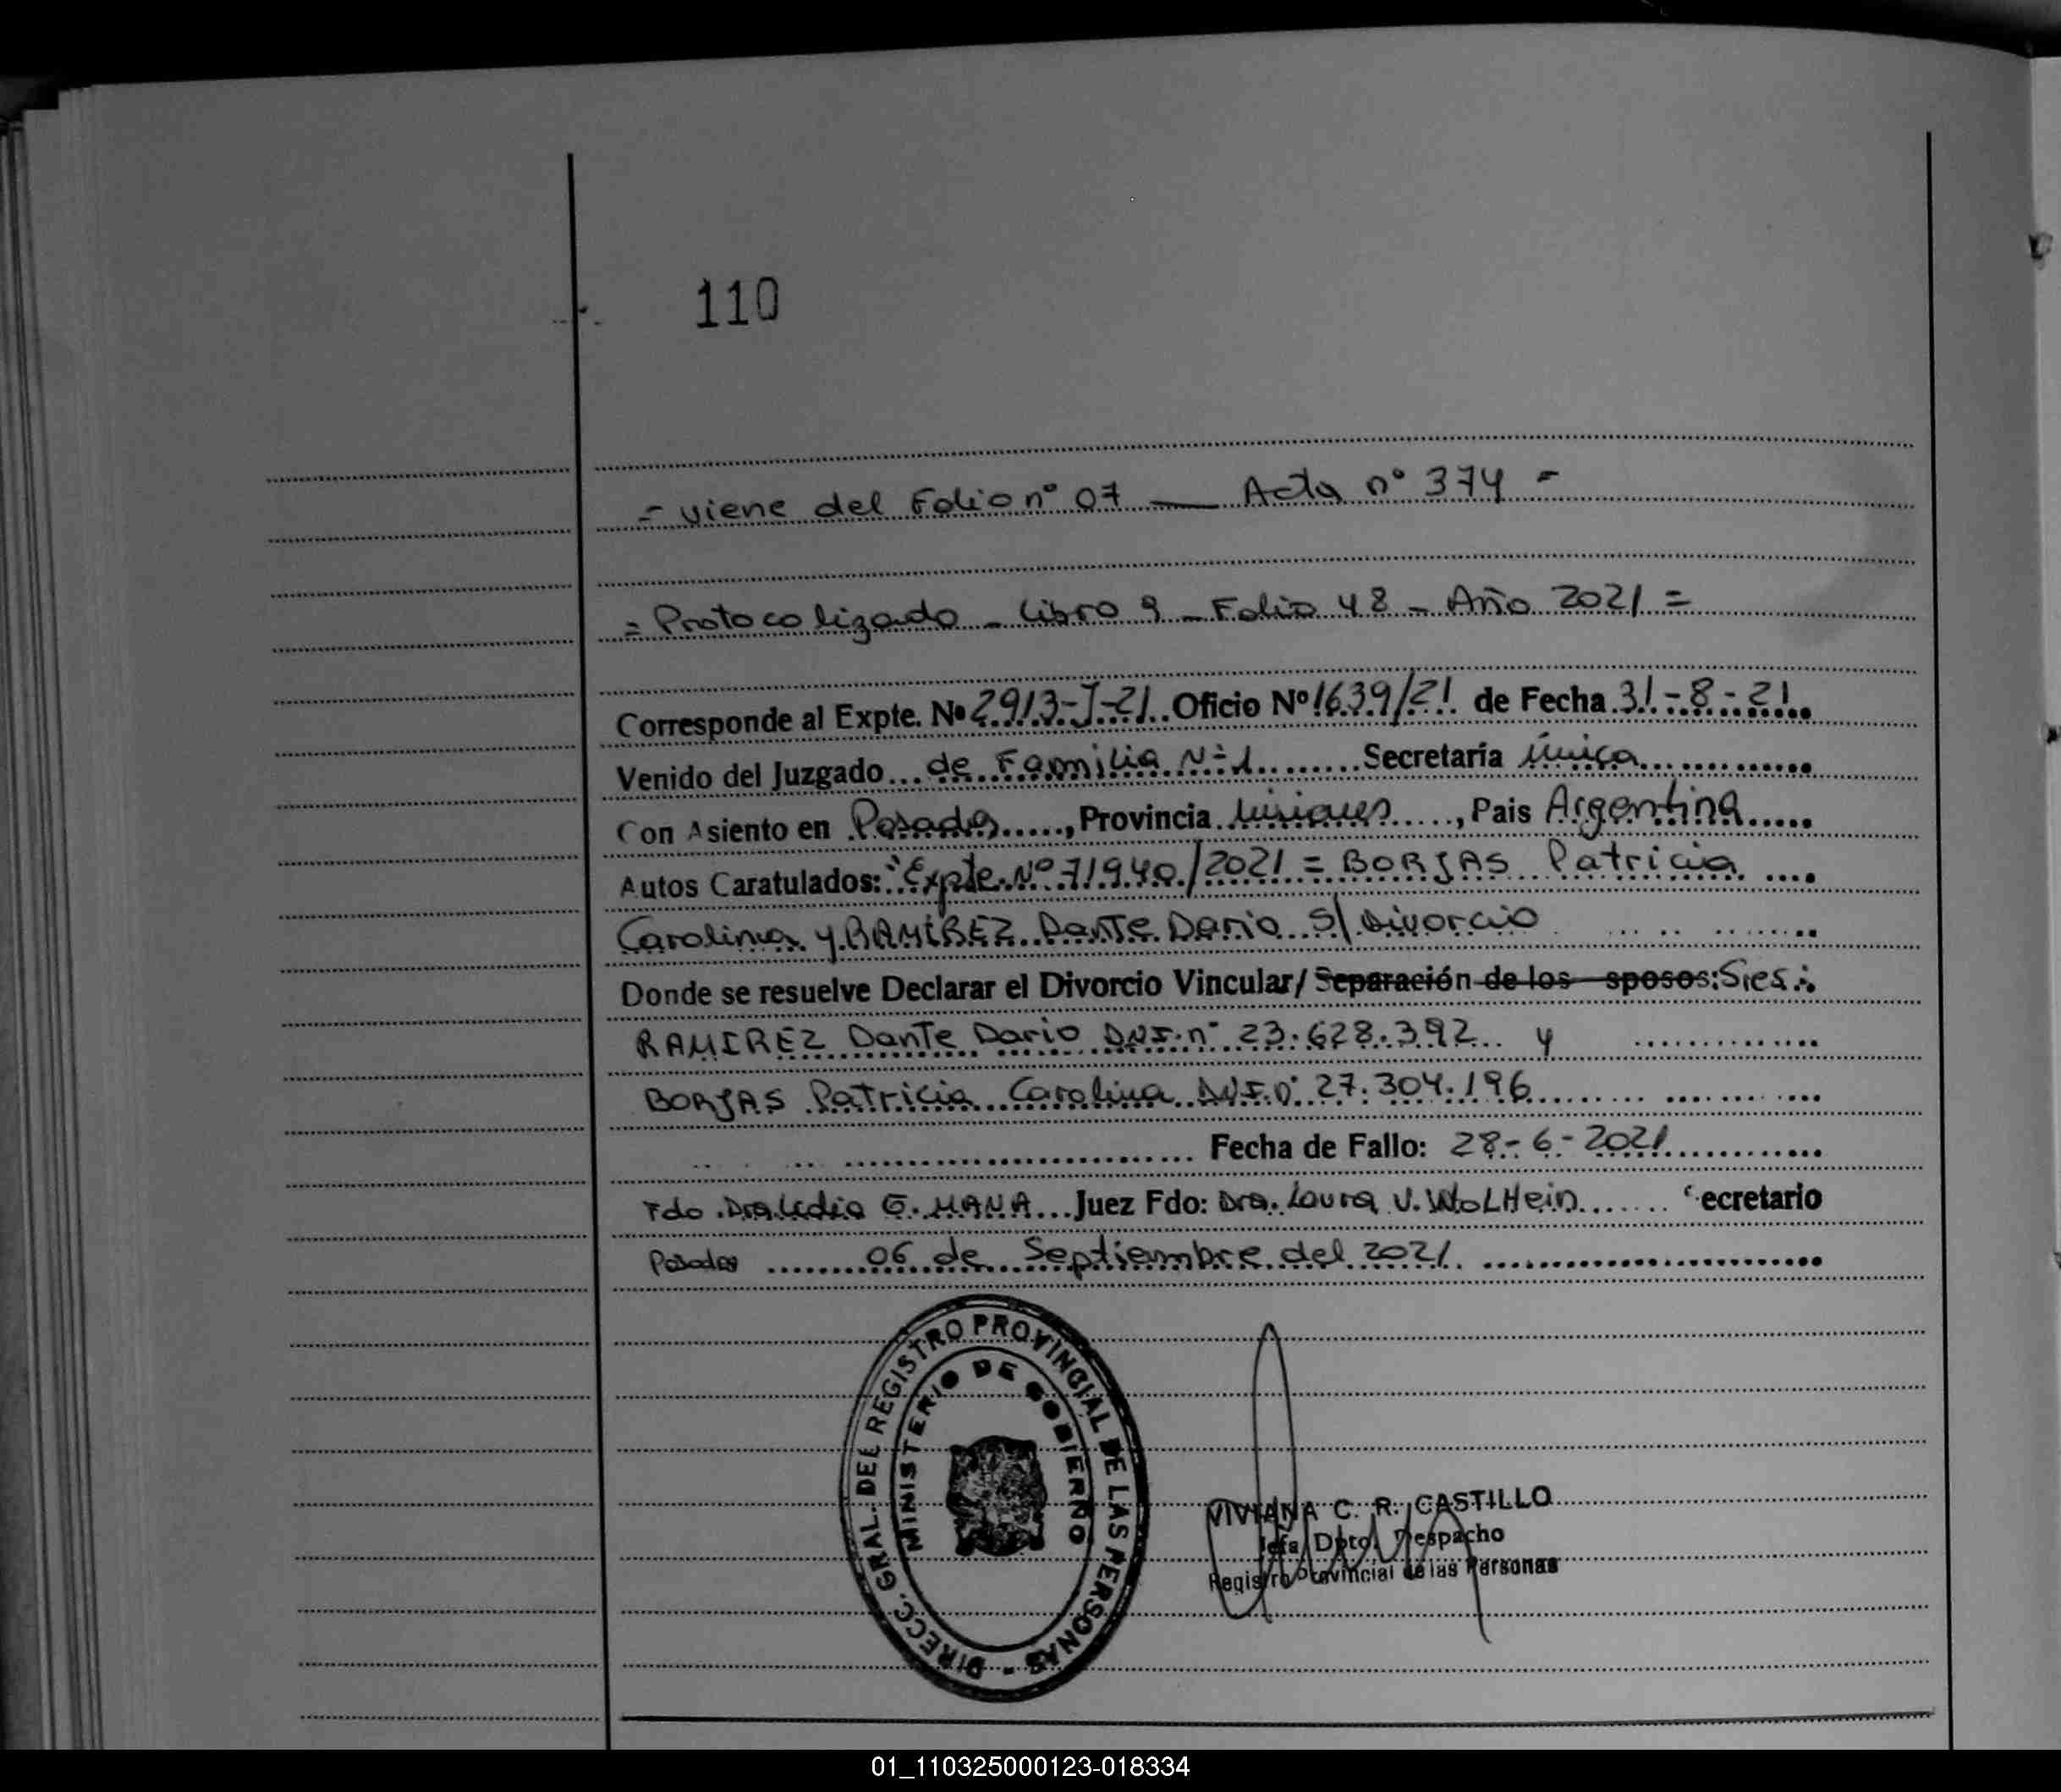 110
= viene del Folio nº 07 — Acta nº 374 =
= Protocolizado - Libro 9 - Folio 48 - Año 2021 =
Corresponde al Expte. Nº 2913-J-21 Oficio Nº 1639/21 de Fecha 31-8-21
Venido del Juzgado de Familia Nº 1 Secretaría Única
Con Asiento en Posadas, Provincia Misiones, Pais Argentina
Autos Caratulados: "Expte. Nº 71940/2021 = BORJAS Patricia
Carolina y RAMIREZ Dante Dario S/ Divorcio
Donde se resuelve Declarar el Divorcio Vincular/ Separación de los sposos: Sres:
RAMIREZ Dante Dario DNI. nº 23.628.392 y
BORJAS Patricia Carolina DNI. nº 27.304.196
Fecha de Fallo: 28-6-2021
Fdo. Dra. Lidia G. MANA Juez Fdo: Dra. Laura V. WOLHein ecretario
Posadas 06 de Septiembre del 2021
DIRECC. GRAL. DEL REGISTRO PROVINCIAL DE LAS PERSONAS -
MINISTERIO DE GOBIERNO
VIVIANA C. R. CASTILLO
Jefa Dpto. Despacho
Registro Provincial de las Personas
01_110325000123-018334